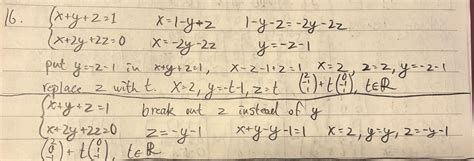 16. {x+y+z=1 x=1-y+z 1-y-z=-2y-2z
{x+2y+2z=0 x=-2y-2z y=-z-1
put y=-z-1 in x+y+z=1, x-z-1+z=1 x=2, z=z, y=-z-1
replace z with t. x=2, y=-t-1, z=t (2 -1 0)+t(0 -1 1), t∈ℝ
{x+y+z=1 break out z instead of y
{x+2y+2z=0 z=-y-1 x+y-y-1=1 x=2, y=y, z=-y-1
(2 0 -1)+t(0 1 -1), t∈ℝ